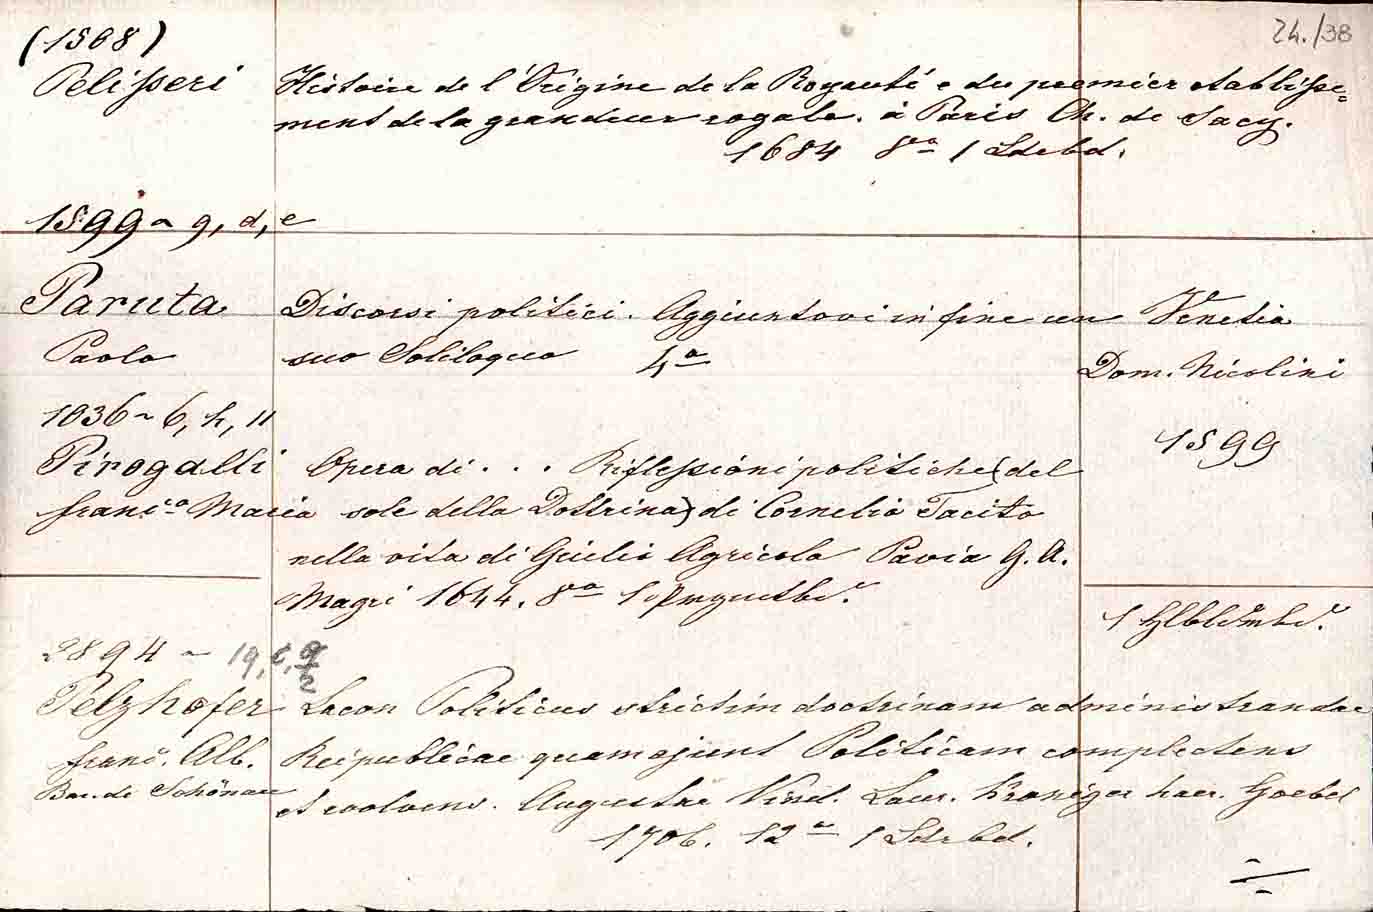 24./38
(1568)
Pelisseri Histoire de l'Origine de la Royauté e du premier etablisse=
ment de la grandeur royale. à Paris Ch. de Sacy.
1684 8vo 1 Ldrbd.
1599~ 9, d, e
Paruta Discorsi politici. Aggiuntovi in fine un Venetia
Paolo suo Soliloquio 4o Dom. Nicolini
1599
1036~ 6, h, 11
Pirogalli Opera di . . . Riflessioni politiche (del
Franc.o Maria sole della Dottrina) di Cornelio Tacito
nella vita di Giulio Agricola Pavia G. A.
Magri 1644. 8vo
2894 ~ 19,
Pelzhofer Lacon Politicus strictim doctrinam administrandae
Franc. Alb. Reipublicae quam ajunt Politicam complectens
Bar. de Schönau et evolvens. Augustae Vind. Laur. Kroniger haer. Goebel
1706. 12o 1 Ldrbd.